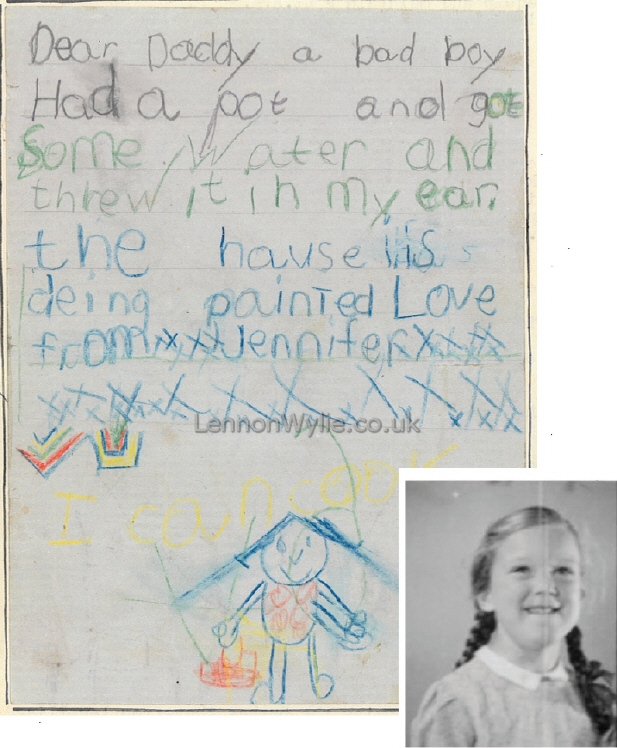 Dear Daddy a bad boy
Had a pot and got
Some Water and
threw it in my ear.
the hause is
deing painted Love
from xxxx Jennifer xxxx
xxxxxxxxxxxxxxxx
LennonWylie.co.uk
I coun cook